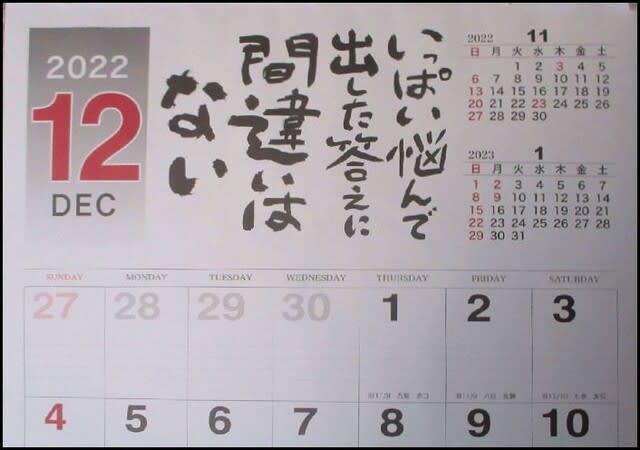 2022
12
DEC
いっぱい悩んで
出した答えに
間違いは
ない
2022 11
日 月 火 水 木 金 土
1 2 3 4 5
6 7 8 9 10 11 12
13 14 15 16 17 18 19
20 21 22 23 24 25 26
27 28 29 30
2023 1
日 月 火 水 木 金 土
1 2 3 4 5 6 7
8 9 10 11 12 13 14
15 16 17 18 19 20 21
22 23 24 25 26 27 28
29 30 31
SUNDAY MONDAY TUESDAY WEDNESDAY THURSDAY FRIDAY SATURDAY
27 28 29 30 1 2 3
4 5 6 7 8 9 10